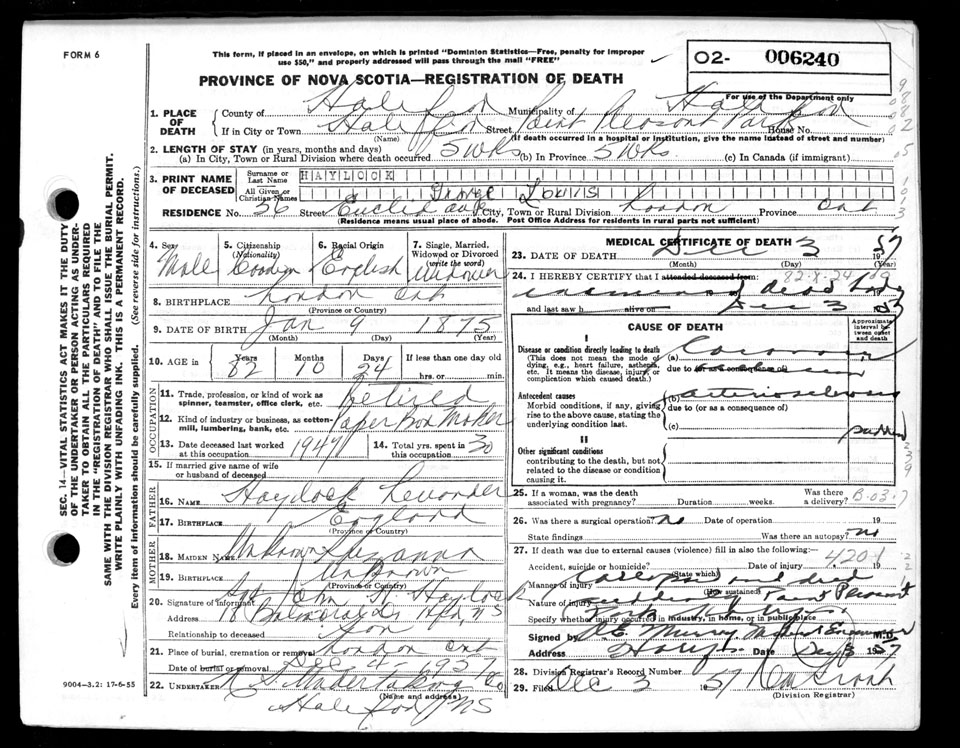 FORM 6
This form, if placed in an envelope, on which is printed "Dominion Statistics—Free, penalty for improper
use $50," and properly addressed will pass through the mail "FREE"
02- 006240
PROVINCE OF NOVA SCOTIA—REGISTRATION OF DEATH
For use of the Department only
1. PLACE OF DEATH
County of Halifax Municipality of Halifax
If in City or Town Halifax Street Point Pleasant Park House No.
(Name) (If death occurred in a hospital or institution, give the name instead of street and number)
2. LENGTH OF STAY (in years, months and days)
(a) In City, Town or Rural Division where death occurred 5 WKS (b) In Province 5 WKS. (c) In Canada (if immigrant)
3. PRINT NAME OF DECEASED
Surname or Last Name HAYLOCK
All Given or Christian Names Louis
RESIDENCE No. 56 Street Euclid ave City, Town or Rural Division London Province Ont
(Residence means usual place of abode. Post Office Address for residents in rural parts not sufficient)
4. Sex Male
5. Citizenship (Nationality)
6. Racial Origin English
7. Single, Married, Widowed or Divorced (write the word) Widower
8. BIRTHPLACE London Ont
(Province or Country)
9. DATE OF BIRTH Jan 9 1875
(Month) (Day) (Year)
10. AGE in Years 82 Months 10 Days 24 If less than one day old
hrs. or min.
OCCUPATION
11. Trade, profession, or kind of work as spinner, teamster, office clerk, etc. Retired
12. Kind of industry or business, as cotten-mill, lumbering, bank, etc. Paper Box Maker
13. Date deceased last worked at this occupation 1947
14. Total yrs. spent in this occupation 30
15. If married give name of wife or husband of deceased
FATHER
16. NAME Haylock
17. BIRTHPLACE England
(Province or Country)
MOTHER
18. MAIDEN NAME Unknown Suzanna
19. BIRTHPLACE Unknown
(Province or Country)
20. Signature of informant Sgt John Haylock
Address 18 NS
Relationship to deceased Son
21. Place of burial, cremation or removal London Ont
Date of burial or removal Dec 4 - 1957
22. UNDERTAKER N S Undertaking Co
(Name and address)
Halifax NS
MEDICAL CERTIFICATE OF DEATH
23. DATE OF DEATH Dec 3 1957
(Month) (Day) (Year)
24. I HEREBY CERTIFY that I attended deceased from:
82-X-24
dead body
and last saw h alive on Dec 3 53
CAUSE OF DEATH
Approximate interval between onset and death
I
Disease or condition directly leading to death
(This does not mean the mode of dying, e.g., heart failure, asthenia, etc. It means the disease, injury or complication which caused death.)
(a) Coronary
due to (or as a consequence of)
Antecedent causes
Morbid conditions, if any, giving rise to the above cause, stating the underlying condition last.
(b) arteriosclerosis
due to (or as a consequence of)
(c)
sudden
II
Other significant conditions
contributing to the death, but not related to the disease or condition causing it.
25. If a woman, was the death associated with pregnancy? Duration weeks. Was there a delivery?
26. Was there a surgical operation? no Date of operation 19
State findings Was there an autopsy? no
27. If death was due to external causes (violence) fill in also the following:—
Accident, suicide or homicide? Date of injury 19
420-1
(State which)
Manner of injury Collapsed and died
(How sustained)
Nature of injury suddenly Point Pleasant
Specify whether injury occurred in industry, in home, or in public place
Signed by Murray Medical Examiner M.D.
Address Halifax Date Dec 3 1957
28. Division Registrar's Record Number
29. Filed Dec 3 57
(Division Registrar)
SEC. 14—VITAL STATISTICS ACT MAKES IT THE DUTY
OF THE UNDERTAKER OR PERSON ACTING AS UNDER-
TAKER TO OBTAIN ALL THE PARTICULARS REQUIRED
IN THE "REGISTRATION OF DEATH" AND TO FILE THE
SAME WITH THE DIVISION REGISTRAR WHO SHALL ISSUE THE BURIAL PERMIT.
WRITE PLAINLY WITH UNFADING INK. THIS IS A PERMANENT RECORD.
Every item of information should be carefully supplied. (See reverse side for instructions.)
9004—3.2: 17-6-53